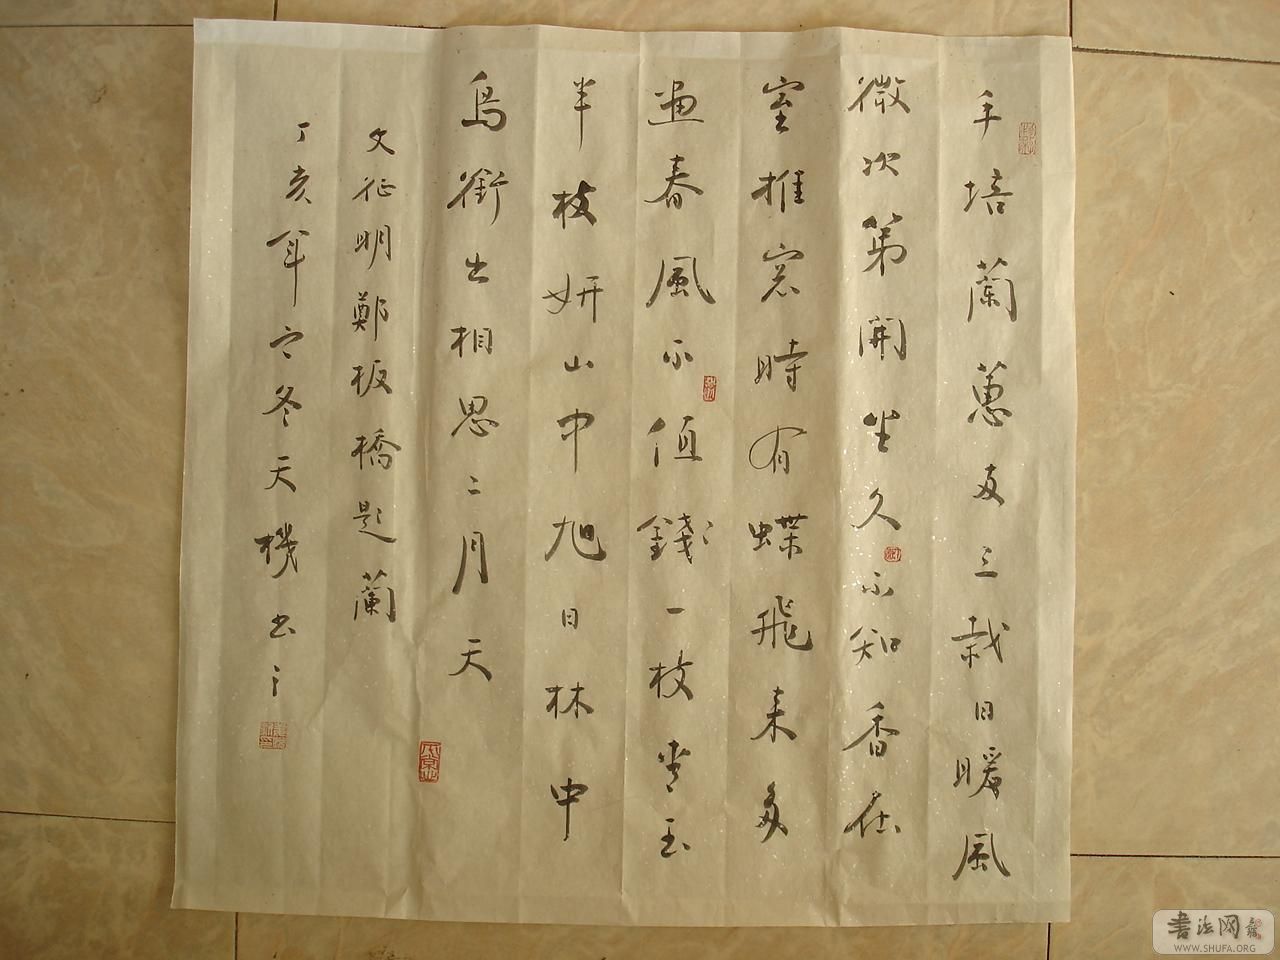 手培蘭蕙两三栽日暖風
微次第開坐久不知香在
室推窓時有蝶飛来多
画春風不值錢一枝青玉
半枝妍山中旭日林中
鳥銜出相思二月天
文征明鄭板橋題蘭
丁亥年之冬天機书之
书法网
WWW.SHUFA.ORG